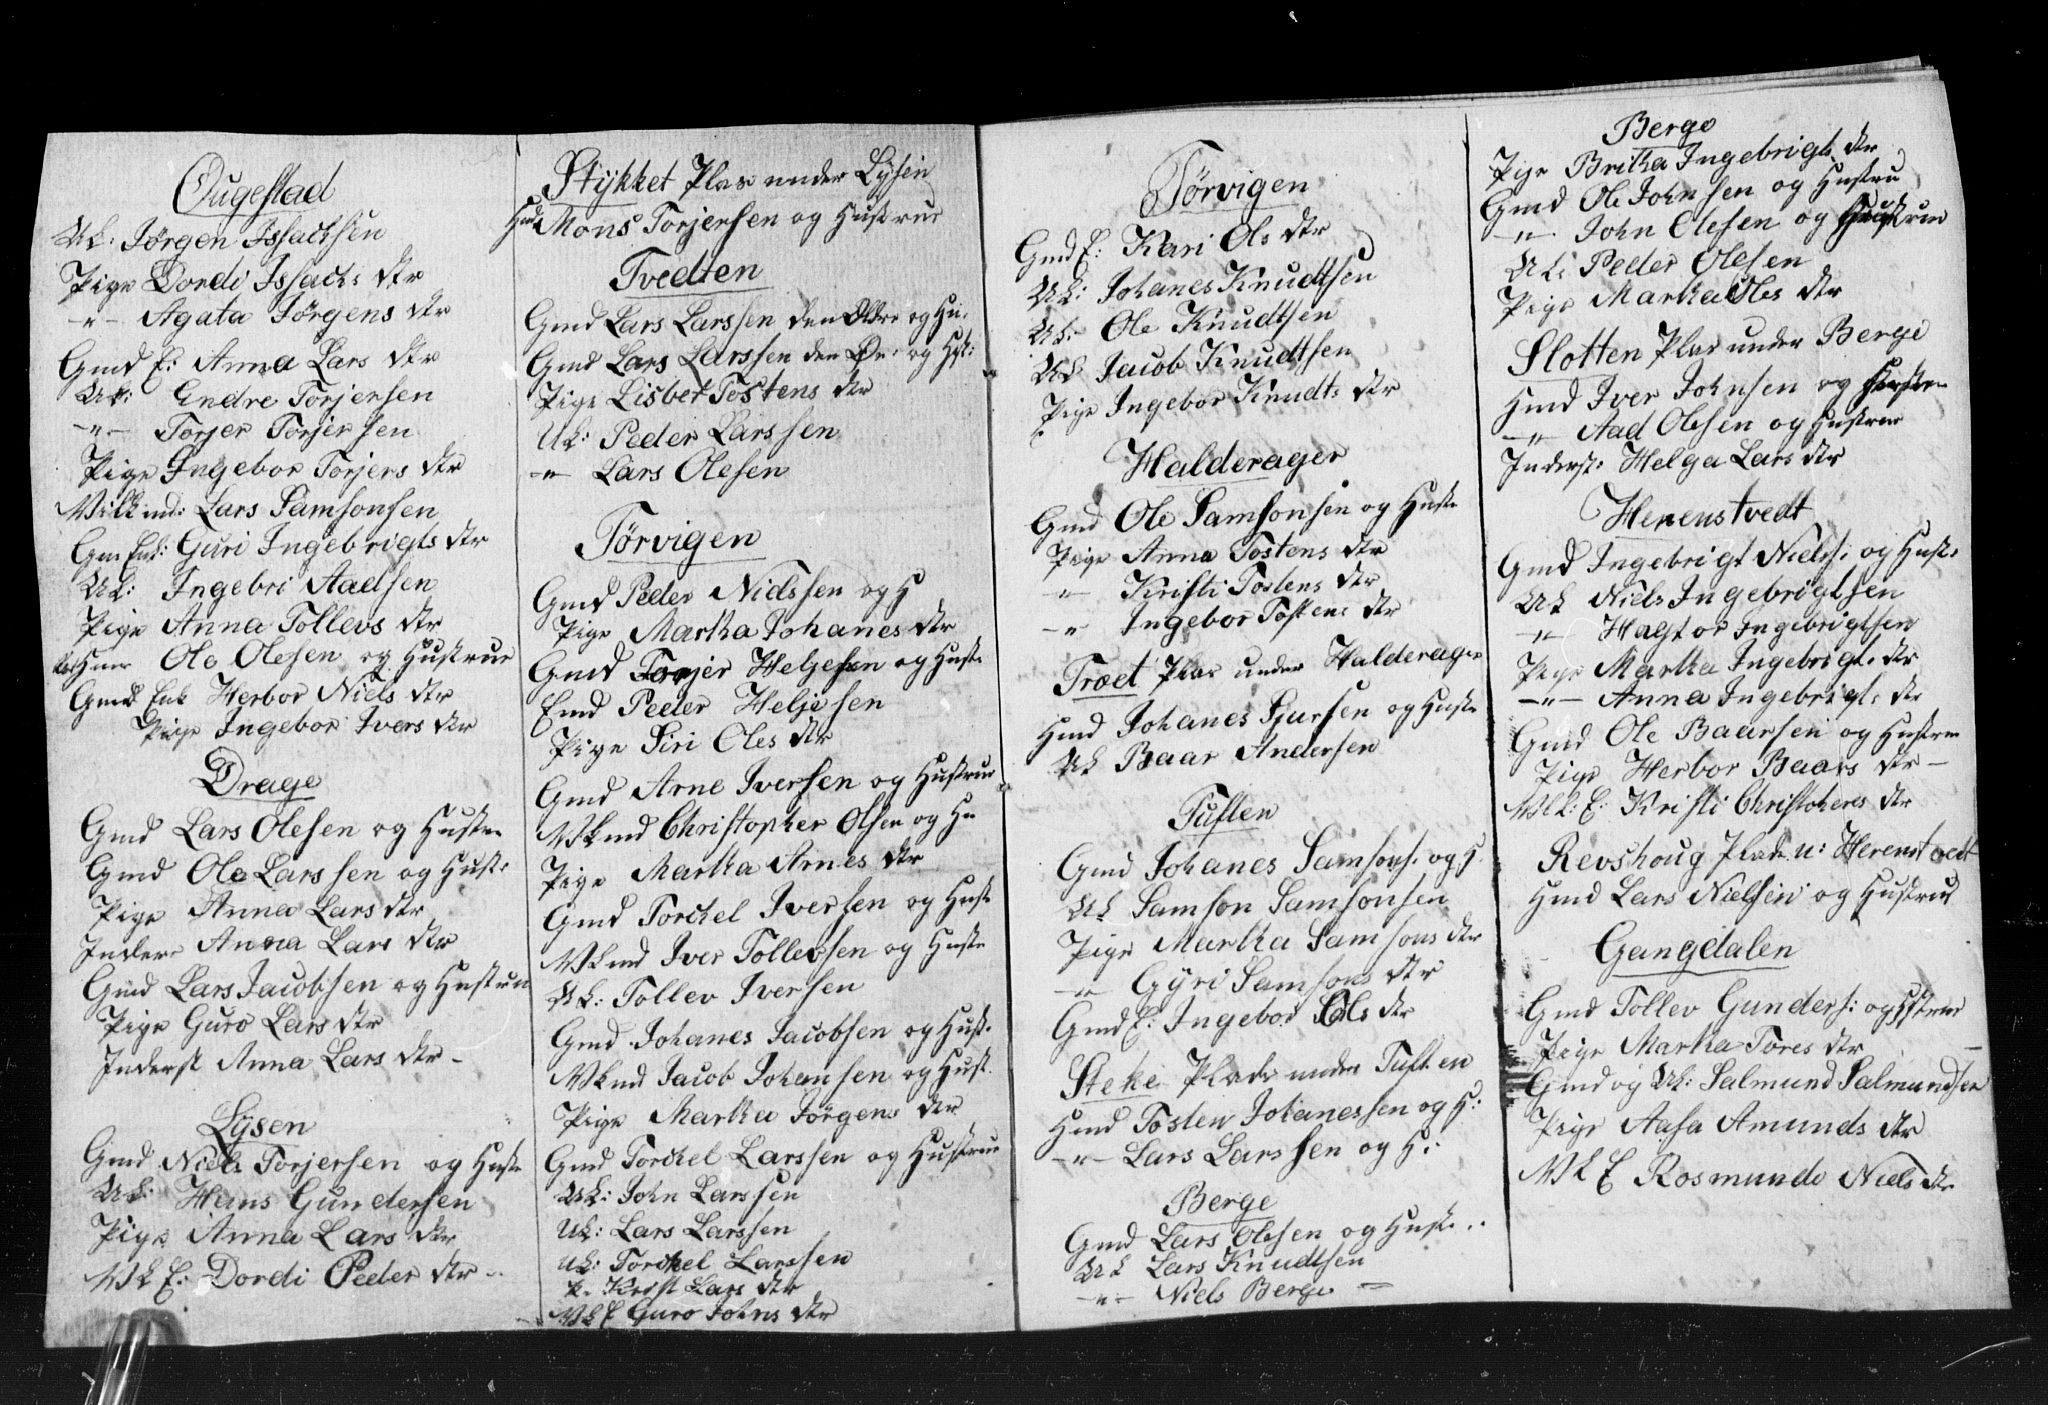 Ougestad
Uk: Jørgen Issachsen
Pige Dordi Issachs dtr
-"- Agata Jørgens dtr
Gmd E: Anna Lars dtr
Uk: Endre Torjersen
-"- Torjer Torjersen
Pige Ingebor Torjers dtr
Vilk md: Lars Samsonsen
Gm Enk: Guri Ingebrigts dtr
Uk: Ingebri Aadsen
Pige Anna Tollevs dtr
Ole Olesen og Hustrue
Gmd Enk Herbor Niels dtr
Pige Ingebor Ivers dtr
Drage
Gmd Lars Olesen og Hustru
Gmd Ole Larssen og Hust:
Pige Anna Lars dtr
Inders Anna Lars dtr
Gmd Lars Jacobsen og Hustrue
Pige Guro Lars dtr
Inderst Anna Lars dtr -
Lysen
Gmd Niels Torjersen og Hustr
Uk: Hans Gundersen
Pige Anna Lars dtr
Vk E: Dordi Peder dtr -
Stykket Plas under Lysen
Hmd Mons Torjersen og Hustrue
Tvedten
Gmd Lars Larssen den Eldre og Hu.
Gmd Lars Larssen den og Hst:
Pige Lisbet Tostens dtr
Uk: Peder Larssen
-"- Lars Olesen
Tørvigen
Gmd Peder Nielssen og H
Pige Martha Johanes dtr
Gmd Torjer Heljesen og Hustr
Emd Peder Heljesen
Pige Siri Oles dtr
Gmd Arne Iversen og Hustrue
Vkmd Christopher Olsen og Hu
Pige Martha Arnes dtr
Gmd Torckel Iversen og Hust
Vkmd Iver Tollevsen og Hustr
Uk: Tollev Iversen
Gmd Johanes Jacobsen og Hust.
Vkmd Jacob Johansen og Hust.
Pige Martha Jørgens dtr
Gmd Torckel Larssen og Hustrue
Uk: John Larssen
Uk: Lars Larssen
Uk: Torckel Larssen
P. Krist Lars dtr
Vk E Guro Johns dtr
Tørvigen
Gmd E: Kari Ols dtr
Uk: Johanes Knudtsen
Uk: Ole Knudtsen
Uk Jacob Knudtsen
Pige Ingebor Knudts dtr
Halderager
Gmd Ole Samsonsen og Hustr
Pige Anna Tostens dtr
" Kristi Tostens dtr
-"- Ingebor Tostens dtr
Træet Plas under Halderager
Hmd Johanes Sjursen og Hustr
Uk Baar Andersen
Tuften
Gmd Johanes Samsons: og H.
Uk Samson Samsonsen
Pige Martha Samsons dtr
-"- Gyri Samsons dtr
Gmd E: Ingebor Ols dtr
Steke Plads under Tuften
Hmd Tosten Johanessen og H:
-"- Lars Larssen og H:
Berge
Gmd Lars Olesen og Hustr..
Uk Lars Knudtsen
-"- Niels Berge
Berge
Pige Britha Ingebrigts dtr
Gmd Ole Johnsen og Hustru
-"- John Olesen og Hustrue
Uk: Peder Olesen
Pige Martha Oles dtr
Slotten Plas under Berge
Hmd Iver Johnsen og Hustru
-"- Aad Olesen og Hustrue
Inderst: Helga Lars dtr
Herenstvedt
Gmd Ingebrigt Niels: og Hust:
Uk Niels Ingebrigtsen
-"- Halstor Ingebrigtsen
Pige Martha Ingebrigt. dtr
-"- Anna Ingebrigt: dtr
Gmd Ole Baarsen og Hustrue
Pige Herbor Baars dtr -
Vk: E: Kristi Christophers dtr
Revshoug Plads u: Herenstvedt
Hmd Lars Nielsen og Hustrue
Gangdalen
Gmd Tollev Gunders: og Hstrue
Pige Martha Tores dtr
Gmd og Uk: Salmund Salmundsen
Pige Aasa Amunds dtr
Vk E Rosmunde Niels dtr